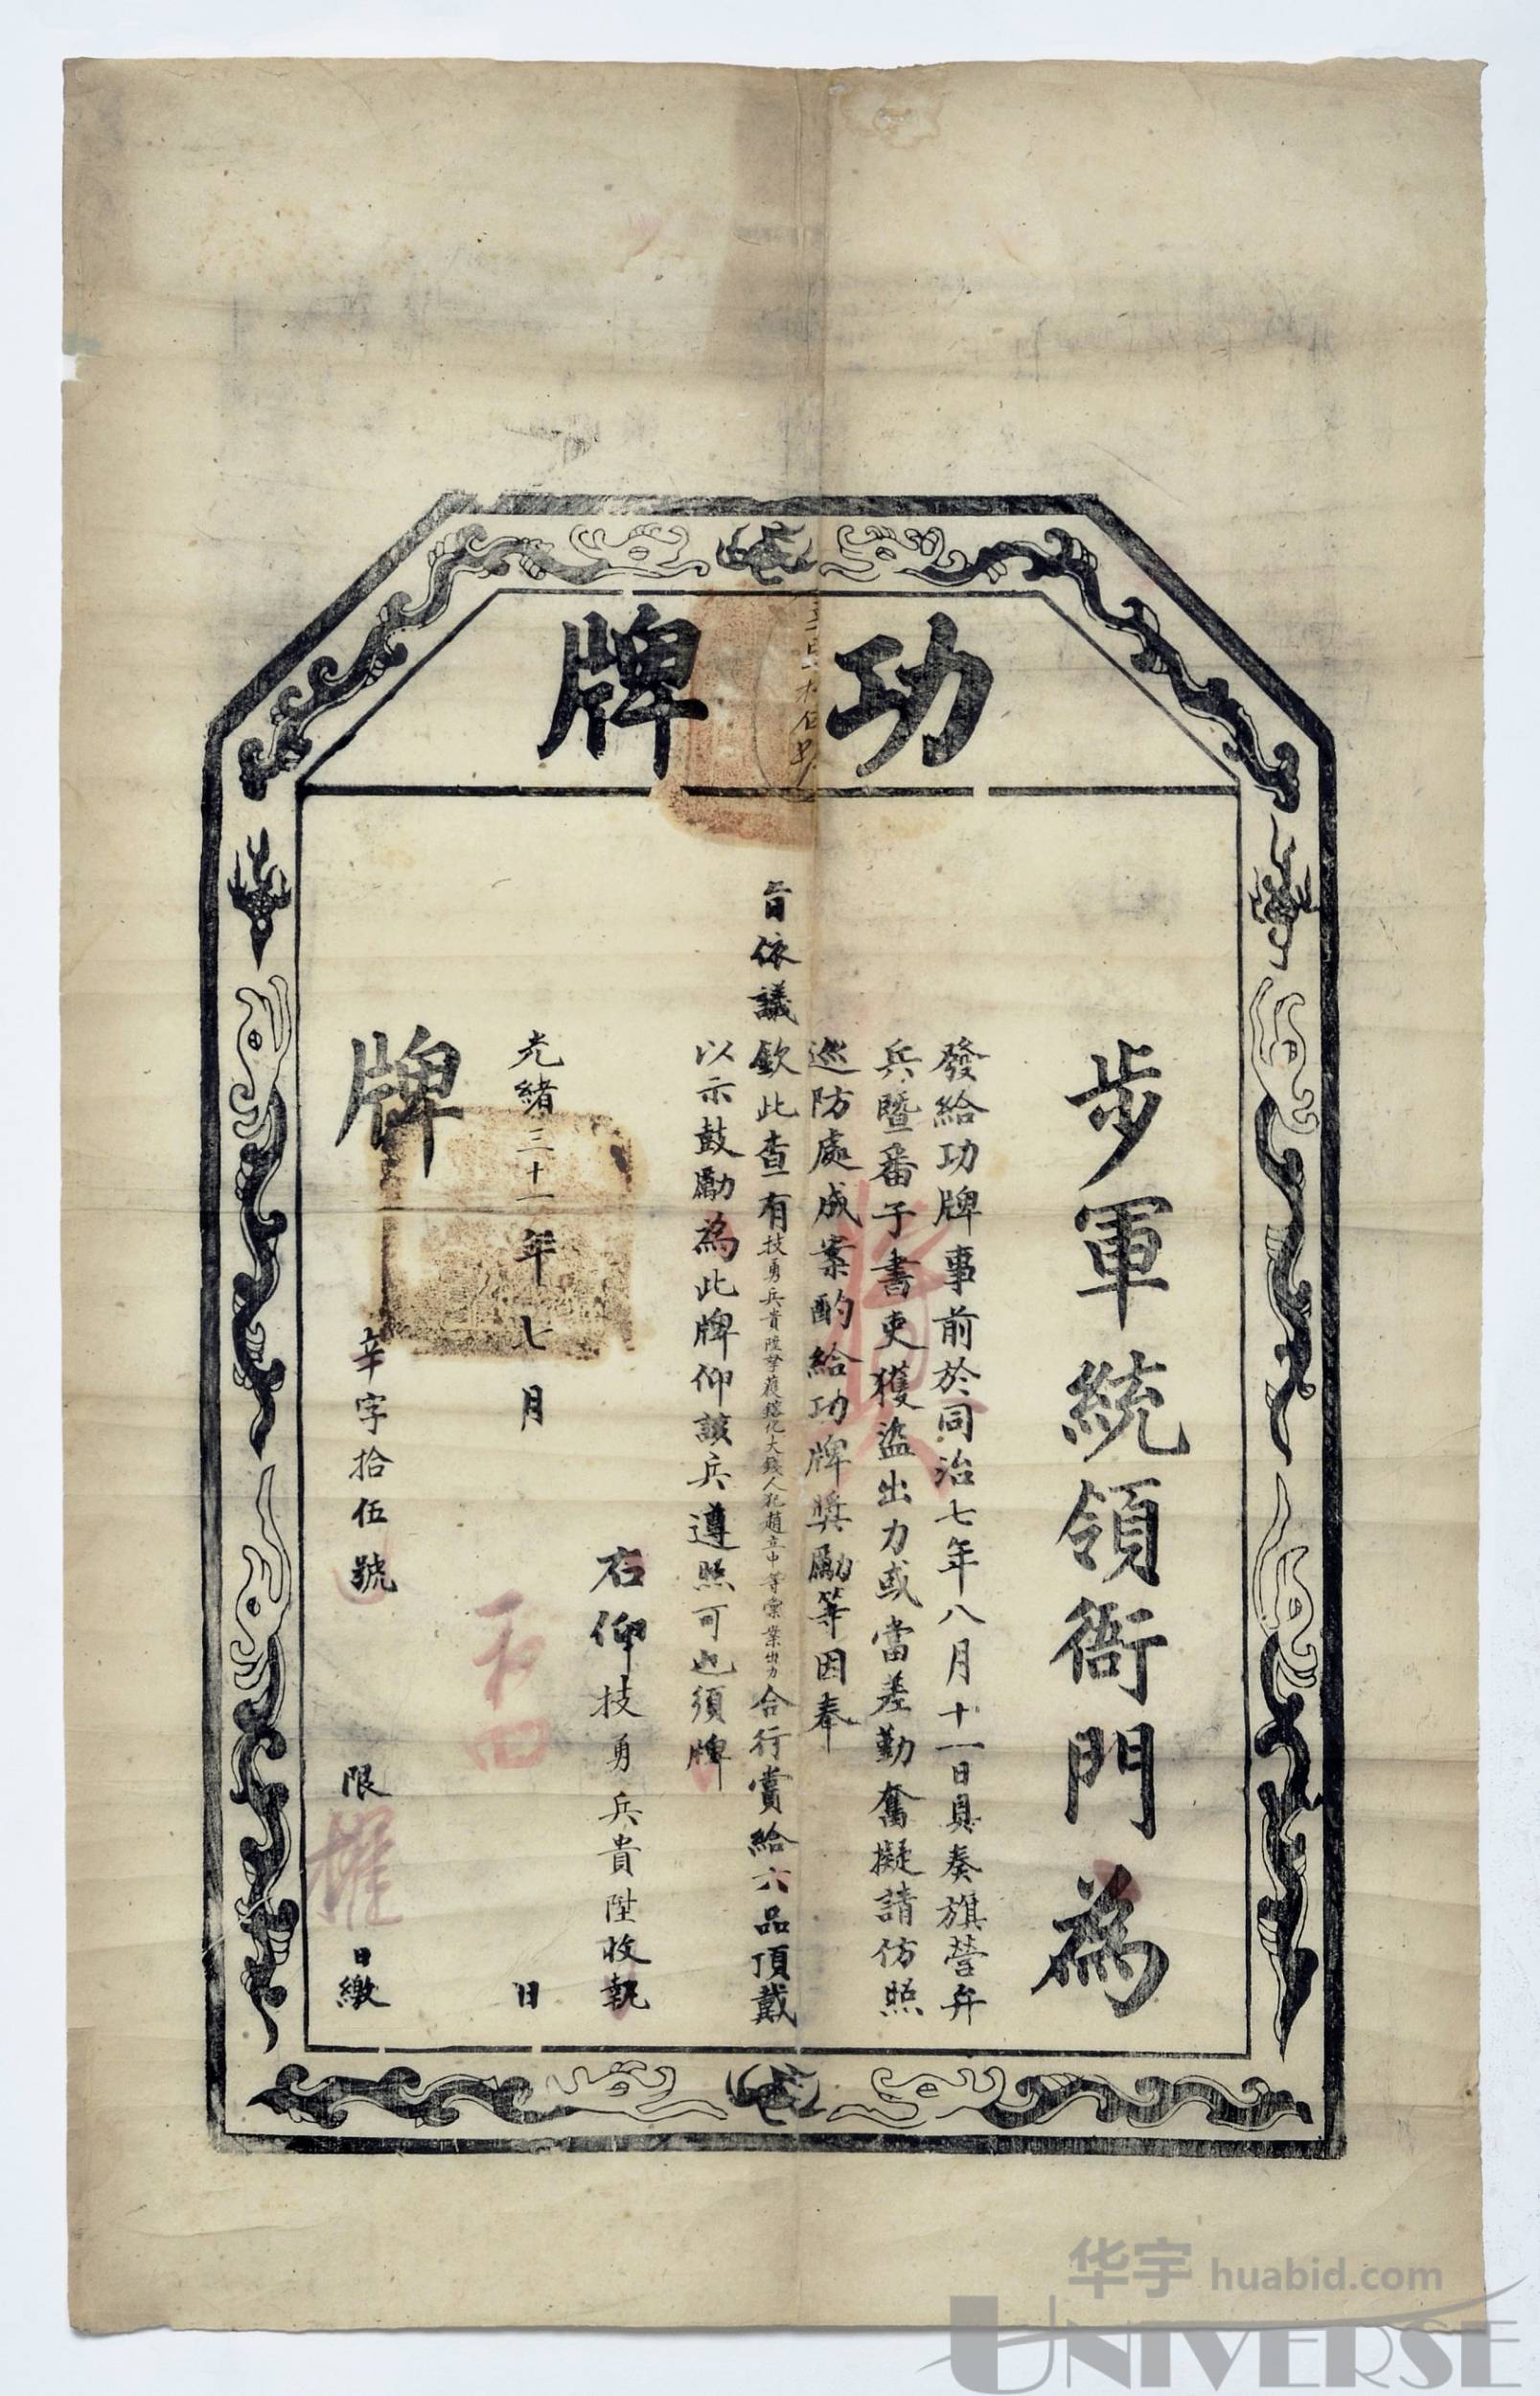 功牌
步軍統領衙門為
發給功牌事前於同治七年八月十一日具奏旗營弁
兵暨番子書吏獲盜出力或當差勤奮擬請仿照
巡防處成案酌給功牌獎勵等因奉
旨依議欽此查有技勇兵貴陞拏獲鎔化大錢人犯趙立中等案業出力合行賞給六品頂戴
以示鼓勵為此牌仰該兵遵照可也須牌
右仰技勇兵貴陞收執
光緒三十一年七月 日
牌
辛字拾伍號
限 日繳
华宇 huabid.com
UNIVERSE